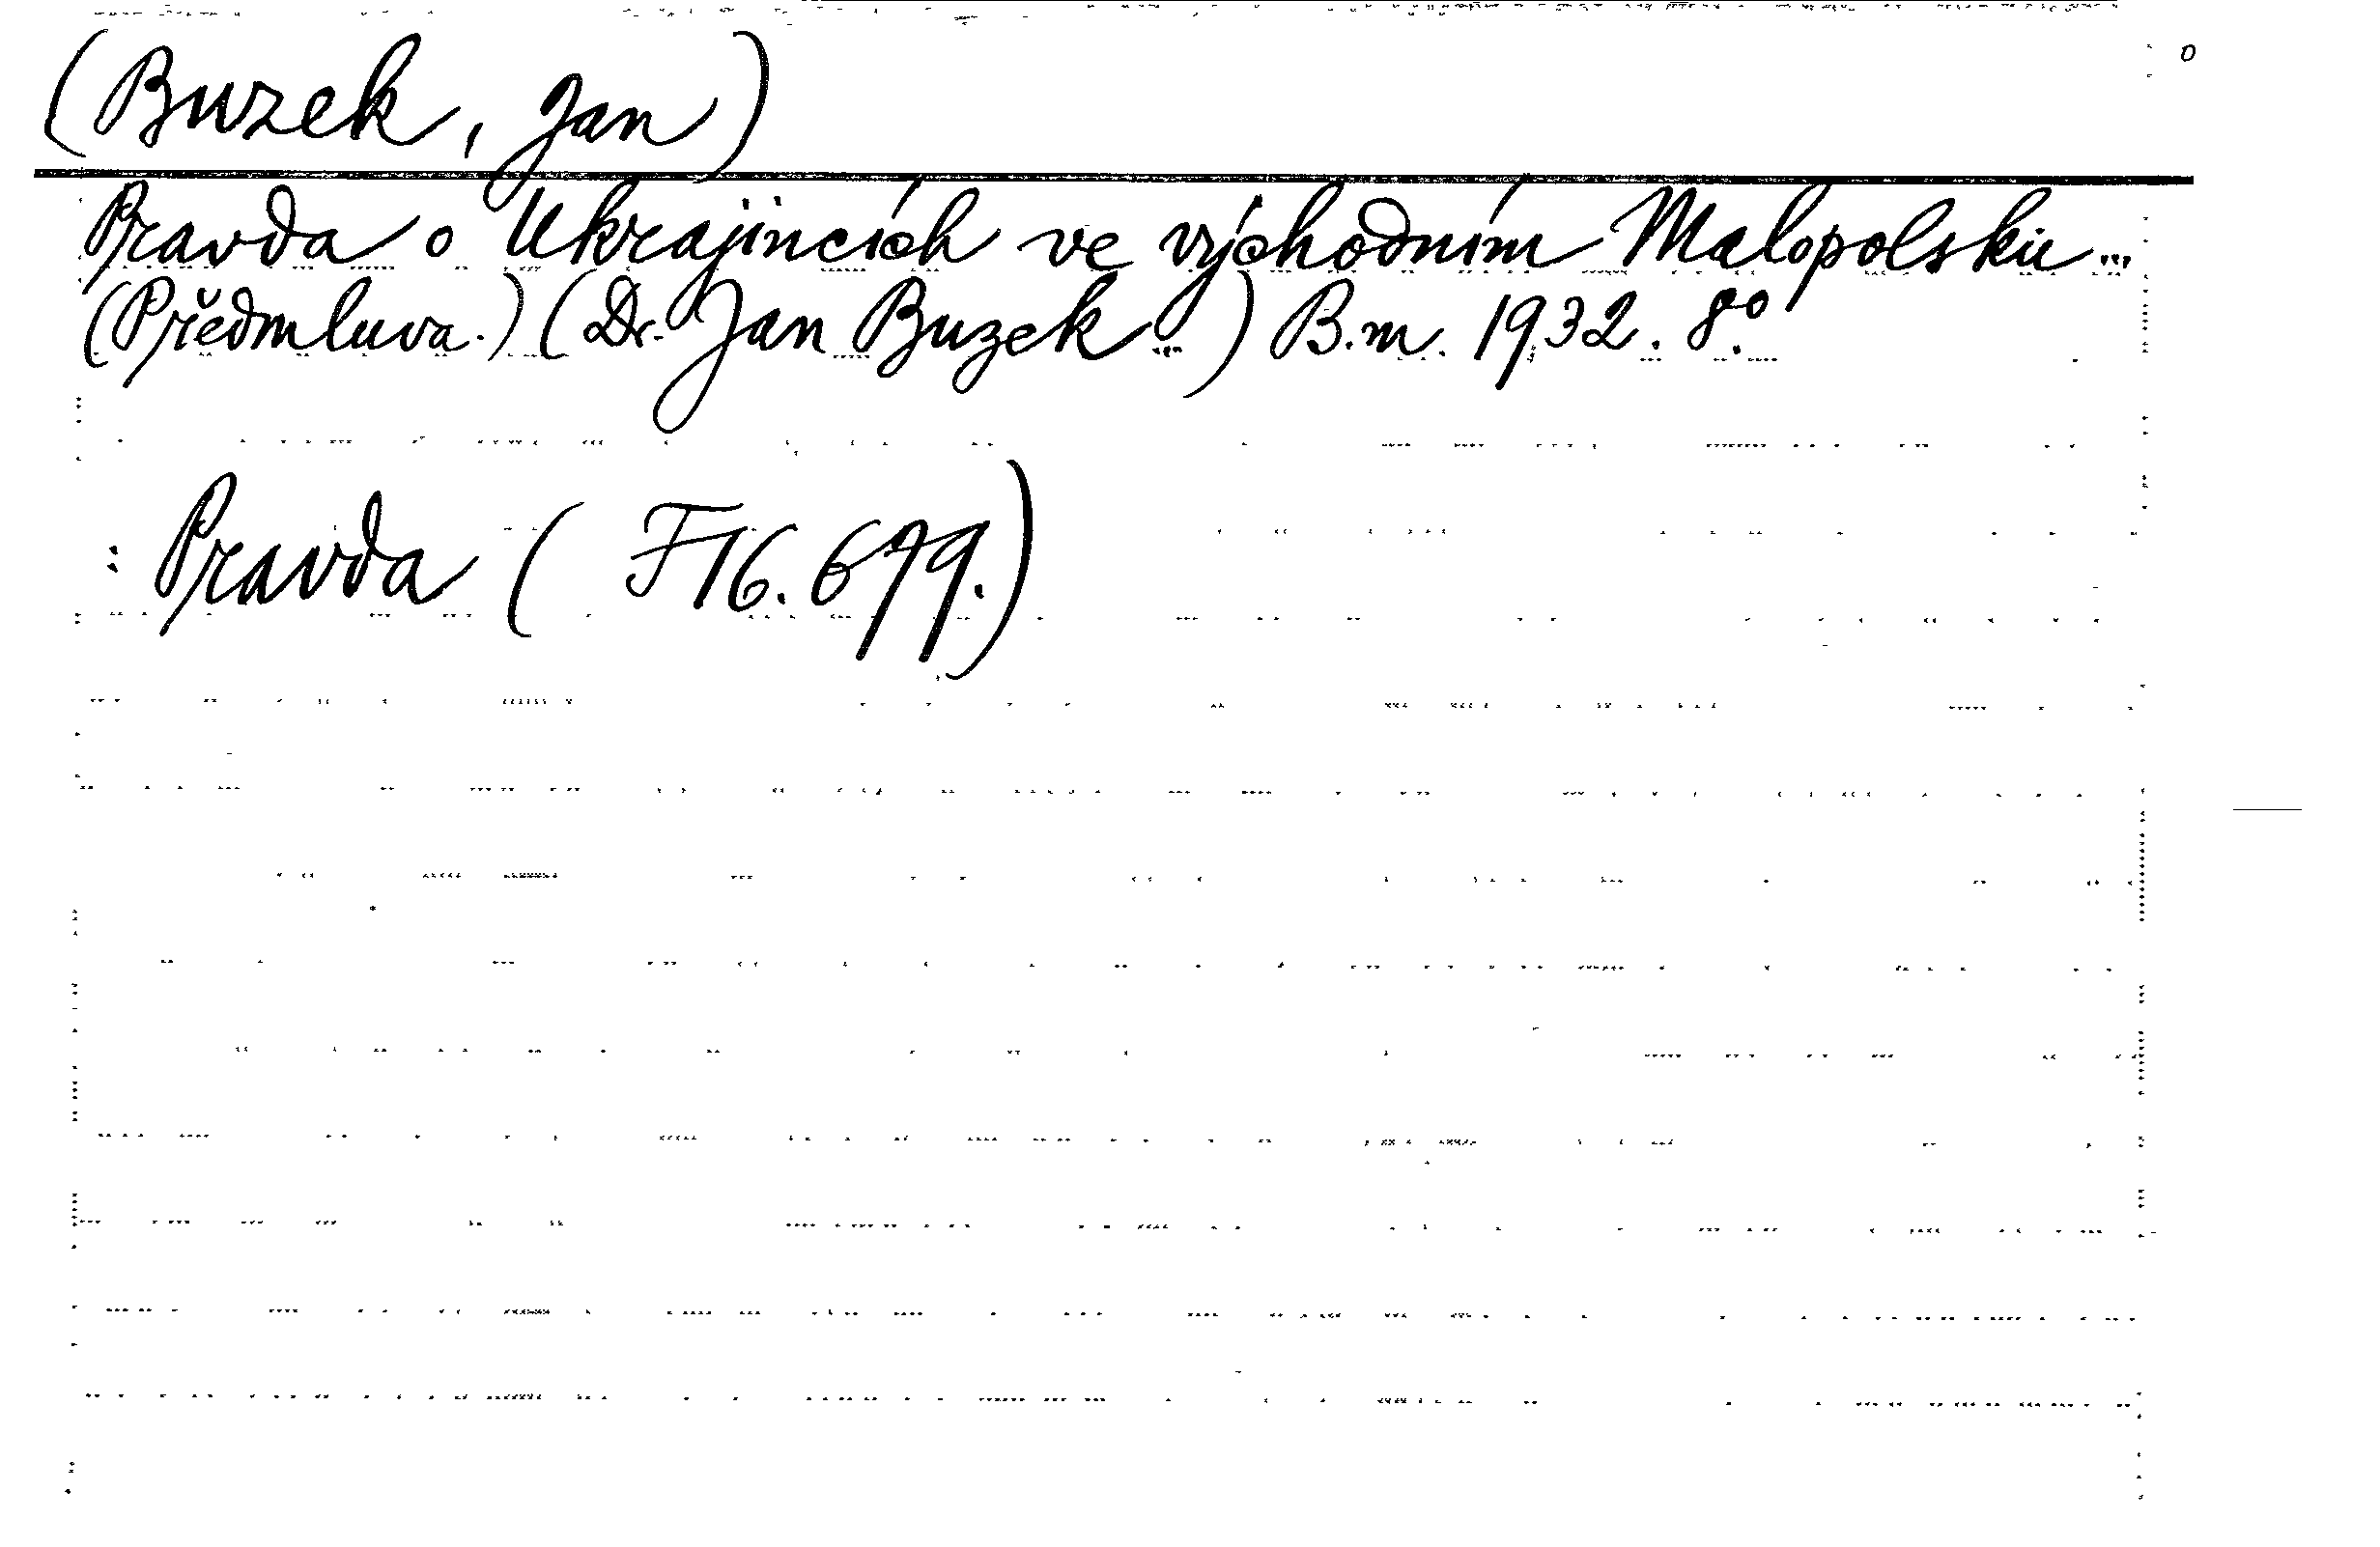 (Buzek, Jan)
Pravda o Ukrajincích ve východním Malopolsku...
(Předmluva.) (Dr. Jan Buzek...) B.m. 1932. 8°.
: Pravda (F 16.699.)